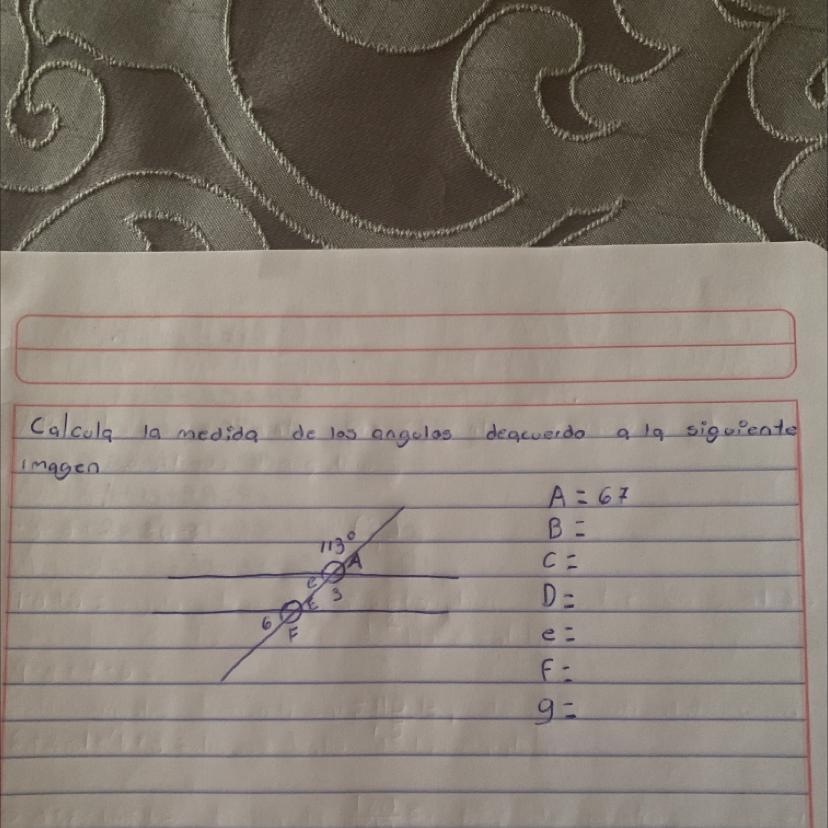 Calcula la medida de los angulos deacuerdo a la siguiente
imagen
A = 67
B =
C =
D =
e =
F =
g =
113°
A
c
3
E
6
F